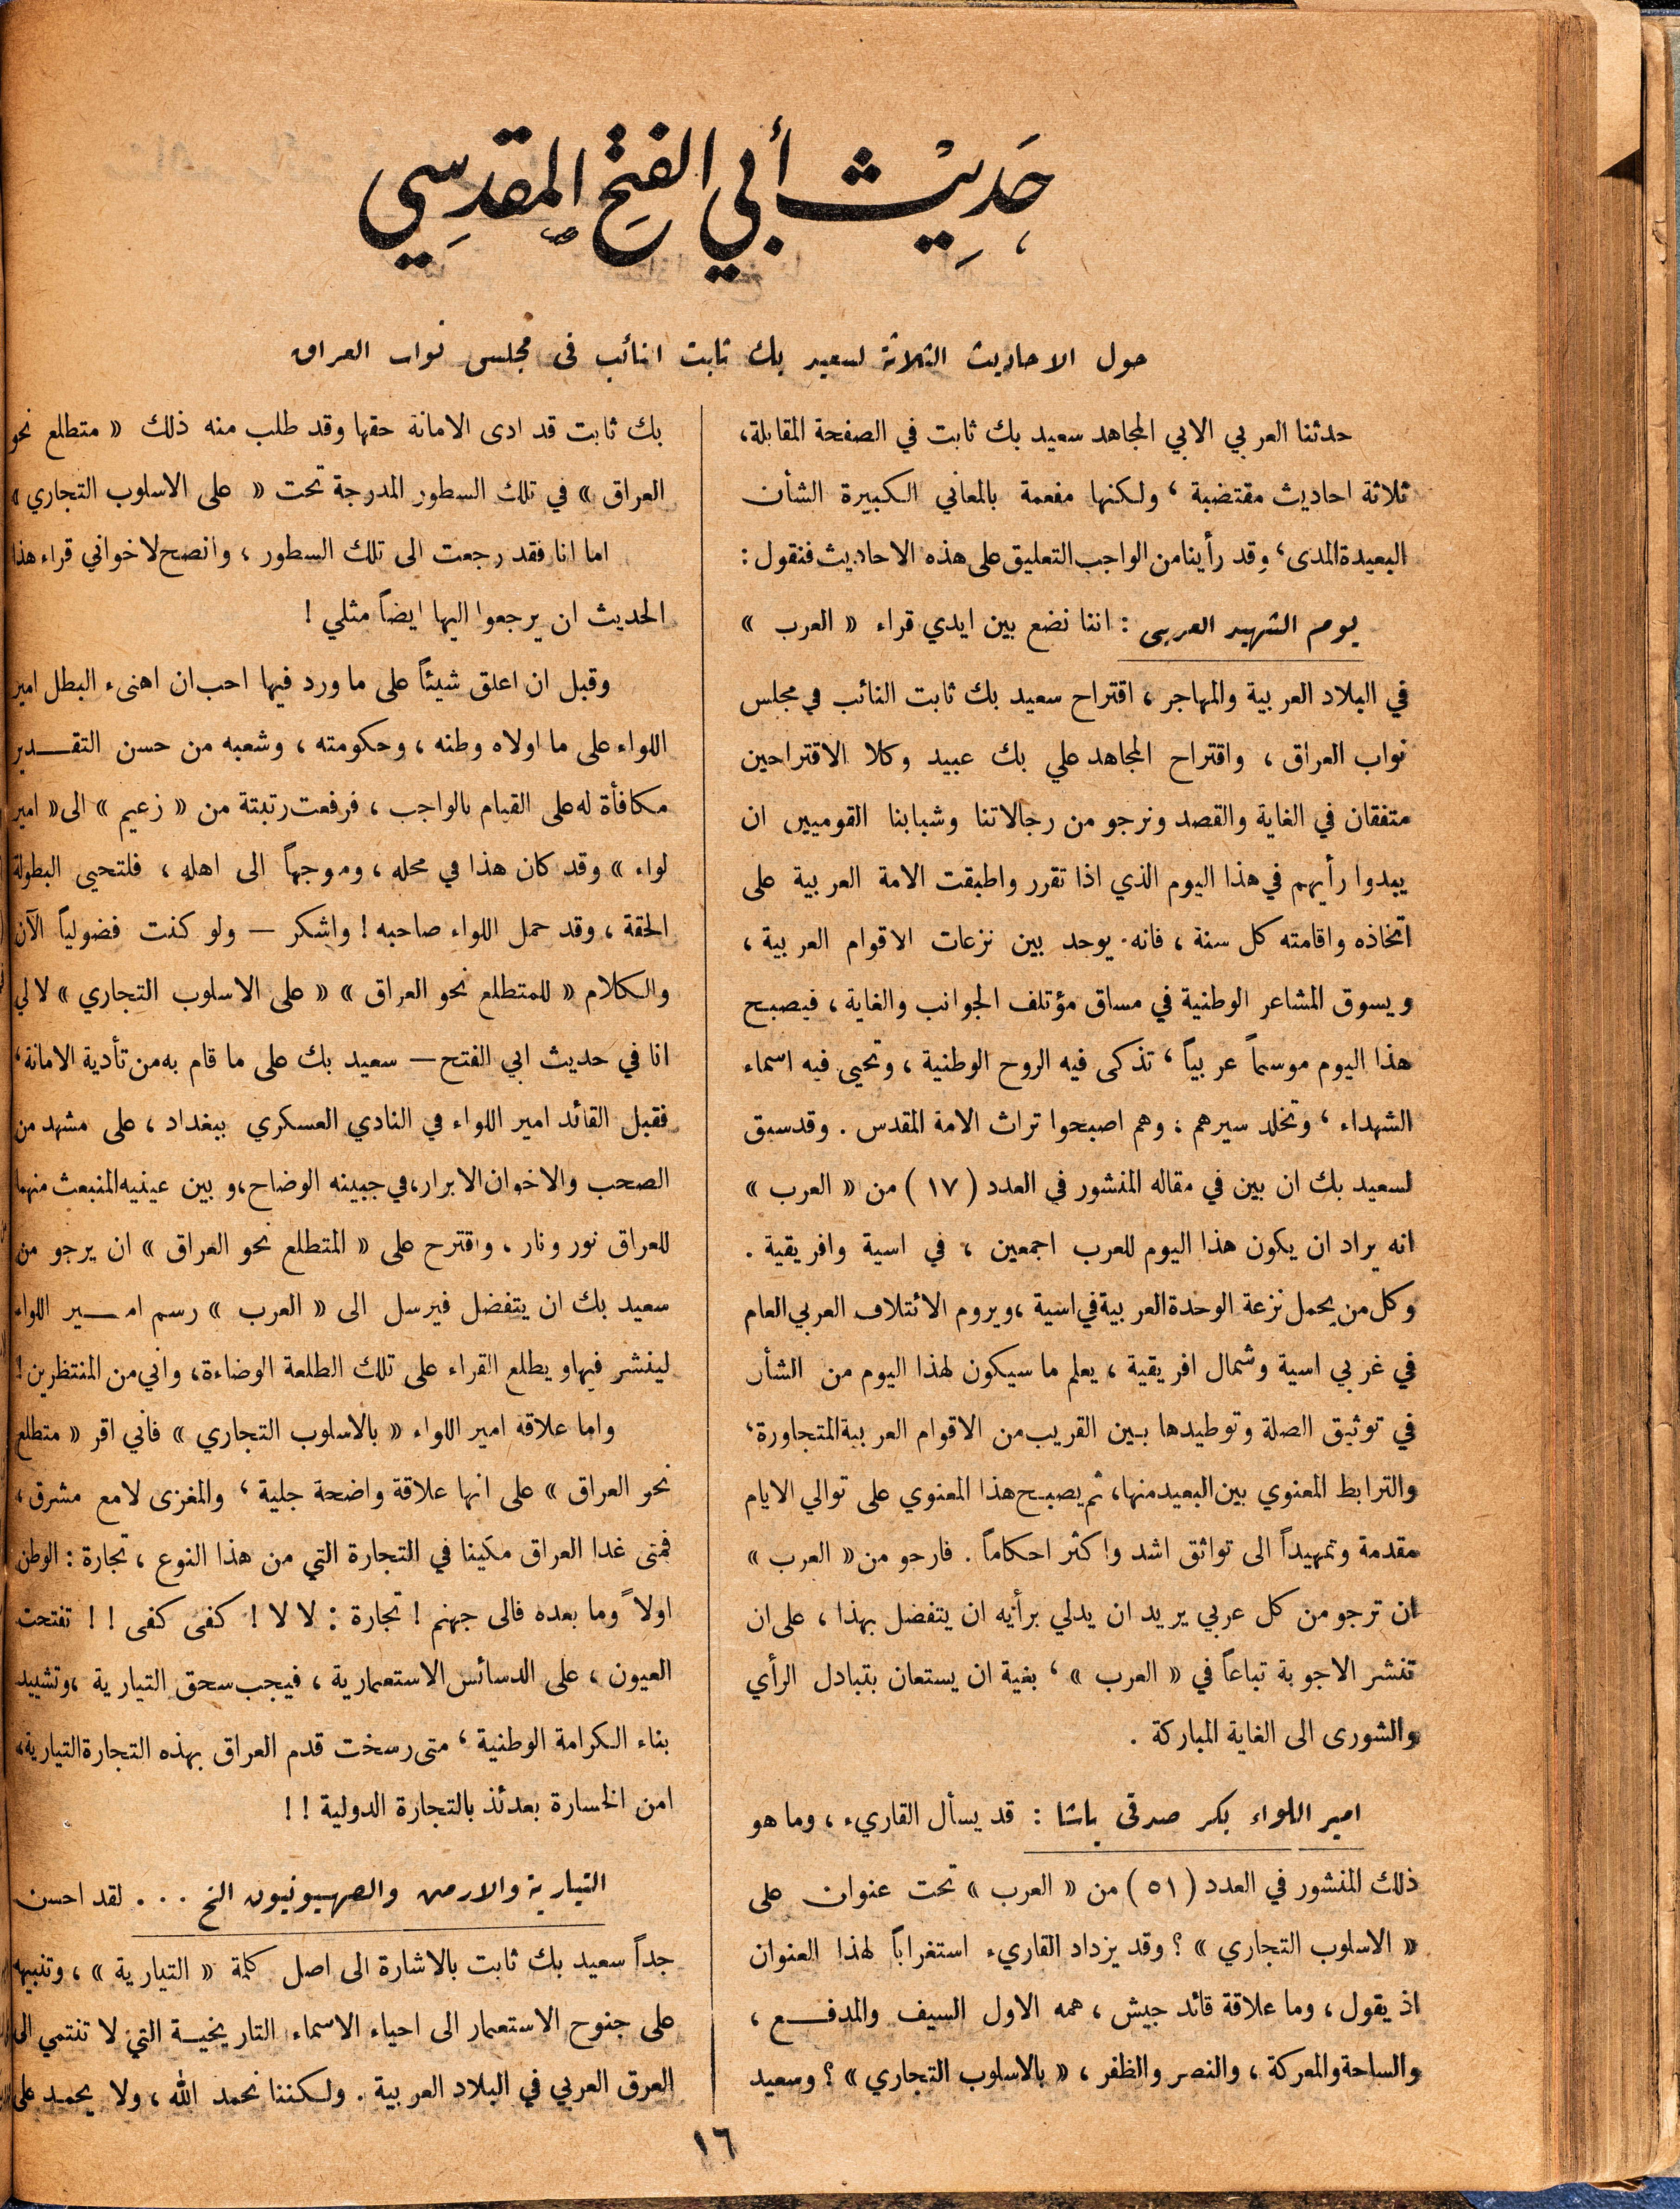 حَدِيْث أبي الفتح المقدسي
حول الاحاديث الثلاثة لسعيد بك ثابت النائب في مجلس نواب العراق
حدثنا العربي الابي المجاهد سعيد بك ثابت في الصفحة المقابلة،
ثلاثة احاديث مقتضبة ، ولكنها مفعمة بالمعاني الكبيرة الشأن
البعيدة المدى، وقد رأينا من الواجب التعليق على هذه الاحاديث فنقول :
يوم الشهيد العربي : اننا نضع بين ايدي قراء « العرب »
في البلاد العربية والمهاجر ، اقتراح سعيد بك ثابت النائب في مجلس
نواب العراق ، واقتراح المجاهد علي بك عبيد وكلا الاقتراحين
متفقان في الغاية والقصد ونرجو من رجالاتنا وشبابنا القوميين ان
يبدوا رأيهم في هذا اليوم الذي اذا تقرر واطبقت الامة العربية على
اتخاذه واقامته كل سنة ، فانه يوحد بين نزعات الاقوام العربية ،
ويسوق المشاعر الوطنية في مساق مؤتلف الجوانب والغاية ، فيصبح
هذا اليوم موسماً عربياً ، تذكى فيه الروح الوطنية ، وتحيى فيه اسماء
الشهداء ، وتخلد سيرهم ، وهم اصبحوا تراث الامة المقدس . وقد سبق
لسعيد بك ان بين في مقاله المنشور في العدد ( ١٧ ) من « العرب »
انه يراد ان يكون هذا اليوم للعرب اجمعين ، في اسية وافريقية .
وكل من يحمل نزعة الوحدة العربية في اسية ، ويروم الائتلاف العربي العام
في غربي اسية وشمال افريقية ، يعلم ما سيكون لهذا اليوم من الشأن
في توثيق الصلة وتوطيدها بين القريب من الاقوام العربية المتجاورة،
والترابط المعنوي بين البعيد منها، ثم يصبح هذا المعنوي على توالي الايام
مقدمة وتمهيداً الى تواثق اشد واكثر احكاماً . فارجو من « العرب »
ان ترجو من كل عربي يريد ان يدلي برأيه ان يتفضل بهذا ، على ان
تنشر الاجوبة تباعاً في « العرب » ، بغية ان يستعان بتبادل الرأي
والشورى الى الغاية المباركة .
امير اللواء بكر صدقي باشا : قد يسأل القاريء ، وما هو
ذلك المنشور في العدد ( ٥١ ) من « العرب » تحت عنوان على
« الاسلوب التجاري » ؟ وقد يزداد القاريء استغراباً لهذا العنوان
اذ يقول ، وما علاقة قائد جيش ، همه الاول السيف والمدفع ،
والساحة والمعركة ، والنصر والظفر ، « بالاسلوب التجاري » ؟ وسعيد
بك ثابت قد ادى الامانة حقها وقد طلب منه ذلك « متطلع نحو
العراق » في تلك السطور المدرجة تحت « على الاسلوب التجاري »
اما انا فقد رجعت الى تلك السطور ، وانصح لاخواني قراء هذا
الحديث ان يرجعوا اليها ايضاً مثلي !
وقبل ان اعلق شيئاً على ما ورد فيها احب ان اهنىء البطل امير
اللواء على ما اولاه وطنه ، وحكومته ، وشعبه من حسن التقدير
مكافأة له على القيام بالواجب ، فرفعت رتبتة من « زعيم » الى « امير
لواء » وقد كان هذا في محله ، وموجهاً الى اهله ، فلتحيى البطولة
الحقة ، وقد حمل اللواء صاحبه ! واشكر — ولو كنت فضولياً الآن
والكلام « للمتطلع نحو العراق » « على الاسلوب التجاري » لا لي
انا في حديث ابي الفتح — سعيد بك على ما قام به من تأدية الامانة ،
فقبل القائد امير اللواء في النادي العسكري ببغداد ، على مشهد من
الصحب والاخوان الابرار، في جبينه الوضاح، وبين عينيه المنبعث منهما
للعراق نور ونار ، واقترح على « المتطلع نحو العراق » ان يرجو من
سعيد بك ان يتفضل فيرسل الى « العرب » رسم امير اللواء
لينشر فيها ويطلع القراء على تلك الطلعة الوضاءة، واني من المنتظرين !
واما علاقه امير اللواء « بالاسلوب التجاري » فاني اقر « متطلع
نحو العراق » على انها علاقة واضحة جلية ، والمغزى لامع مشرق ،
فمتى غدا العراق مكينا في التجارة التي من هذا النوع ، تجارة : الوطن
اولاً وما بعده فالى جهنم ! تجارة : لا لا ! كفى كفى ! ! تفتحت
العيون ، على الدسائس الاستعمارية ، فيجب سحق التيارية ، وتشييد
بناء الكرامة الوطنية ، متى رسخت قدم العراق بهذه التجارة التيارية،
امن الخسارة بعدئذ بالتجارة الدولية ! !
التيارية والارمن والصهيونيون الخ . . . لقد احسن
جداً سعيد بك ثابت بالاشارة الى اصل كلمة « التيارية » ، وتنبيهه
على جنوح الاستعمار الى احياء الاسماء التاريخية التي لا تنتمي الى
العرق العربي في البلاد العربية . ولكننا نحمد الله ، ولا يحمد على
١٦